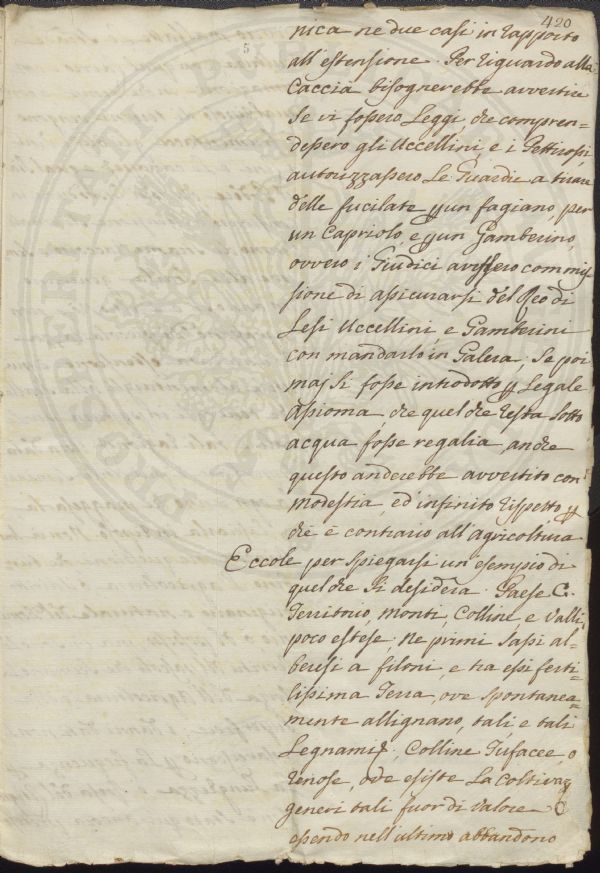 420
5
nica ne due casi in rapporto
all'estensione. Per riguardo alla
Caccia bisognerebbe avvertire
se vi fossero Leggi, che compren=
dessero gli Uccellini, e i Pettirossi
autorizzassero Le Guardie a tirare
delle fucilate p un fagiano, per
un Capriolo, e p un Gamberino,
ovvero i Giudici avessero commis
sione di assicurarsi del Reo di
Lesi Uccellini e Gamberini
con mandarlo in Galera; Se poi
mai si fosse introdotto p Legale
assioma, che quel che resta sotto
acqua fosse regalia, anche
questo anderebbe avvertito con
modestia, ed infinito rispetto, p
che è contrario all'agricoltura
Eccole per spiegarsi un esempio di
quel che si desidera. Paese C.
Territorio, monti, Colline, e Valli,
poco estese, Ne primi sassi al=
beresi a filoni, e tra essi ferti=
lissima Terra, ove spontanea=
mente allignano, tali e tali
Legnami, Colline Tufacee o
renose, ove esiste La Coltivaz
generi tali fuor di valore
essendo nell'ultimo abbandono